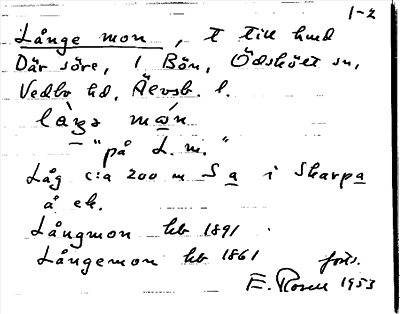 1-2
Långe mon, t till hmd
Där söre, 1 Bön, Ödskölt sn,
Vedbo hd, Älvsb. l.
làŋə mán
"på L. m."
Låg c:a 200 m S a i Skarpa
å ek.
Långmon hb 1891
Långemon hb 1861
forts.
E. Rosén 1953